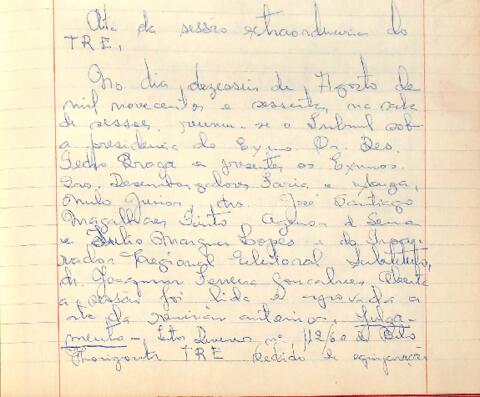 Ata da sessão extraordinaria do
TRE,
No dia dezesseis de Agosto de
mil novecentos e sessenta, na sala
de sessões, reuniu-se o Tribunal sob
a presidencia do Exmo. Dr. Des.
Pedro Braga e presentes os Exmos.
Drs. Desembargadores Faria e Souza,
Junior, drs. José Santiago
Magalhães Pinto, de Sena
e Tulio Marques Lopes e do Procu-
rador Regional Eleitoral Substituto,
dr. Joaquim Ferreira Gonçalves. Aberta
a sessão foi lida e aprovada a
ata da reunião anterior. Julga-
mento -, nº 112/60 de Belo
Horizonte TRE Pedido de